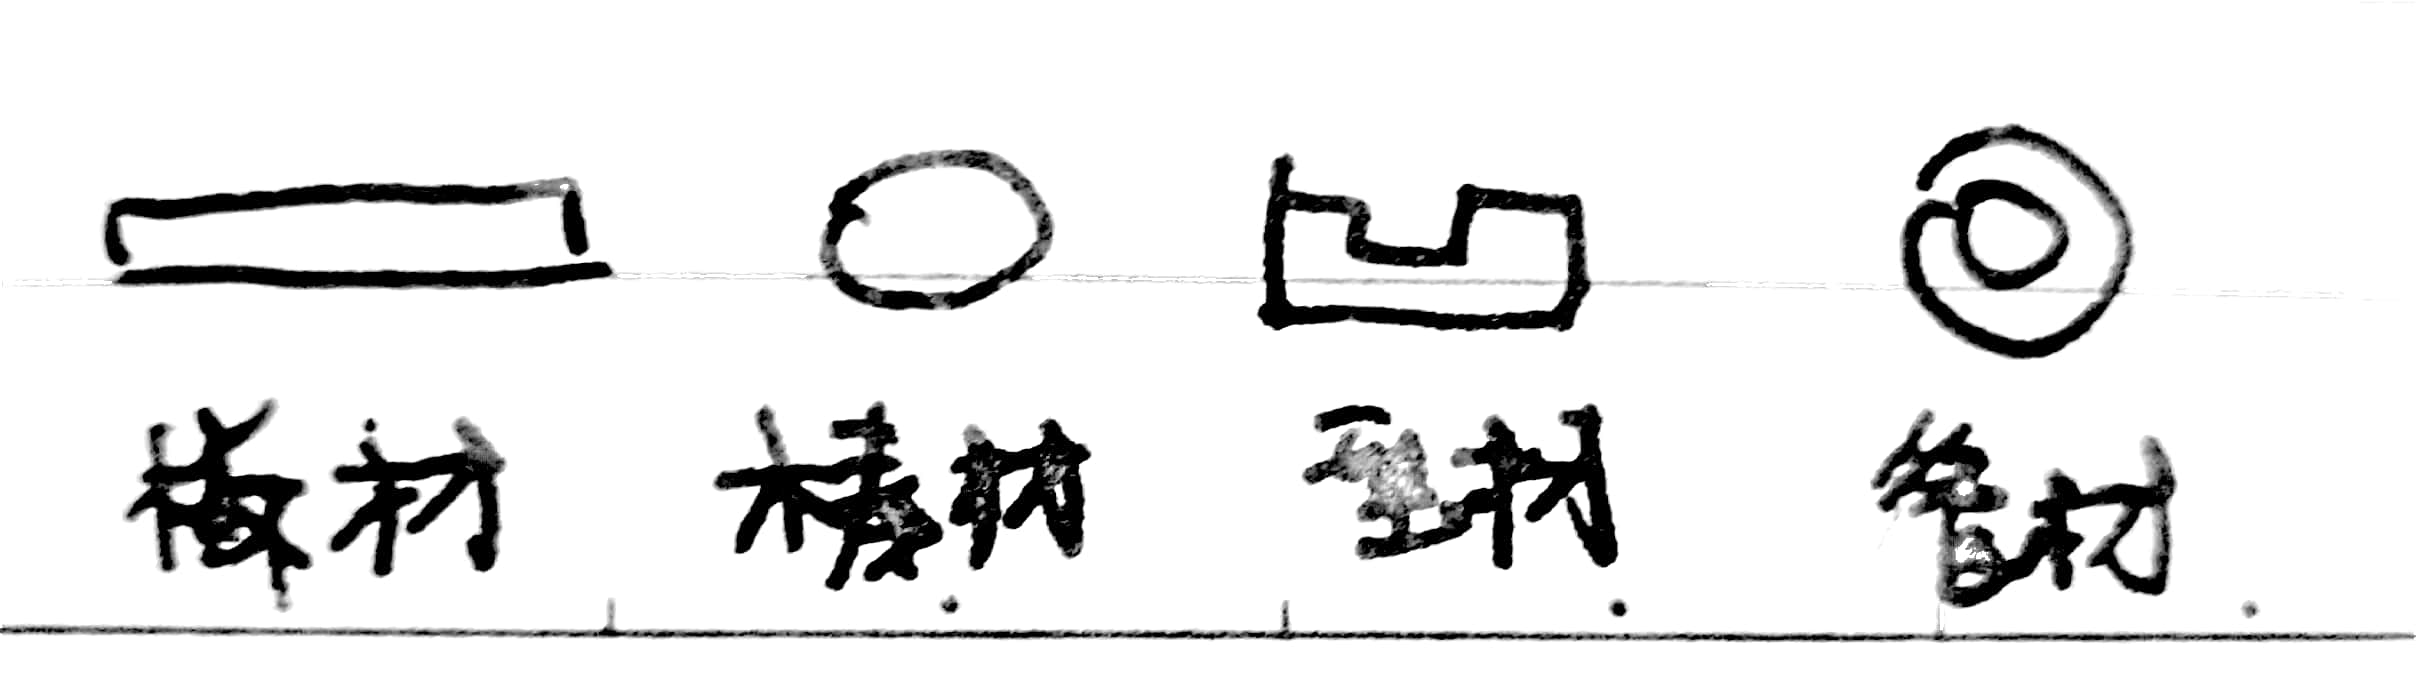 板材 棒材 型材 管材